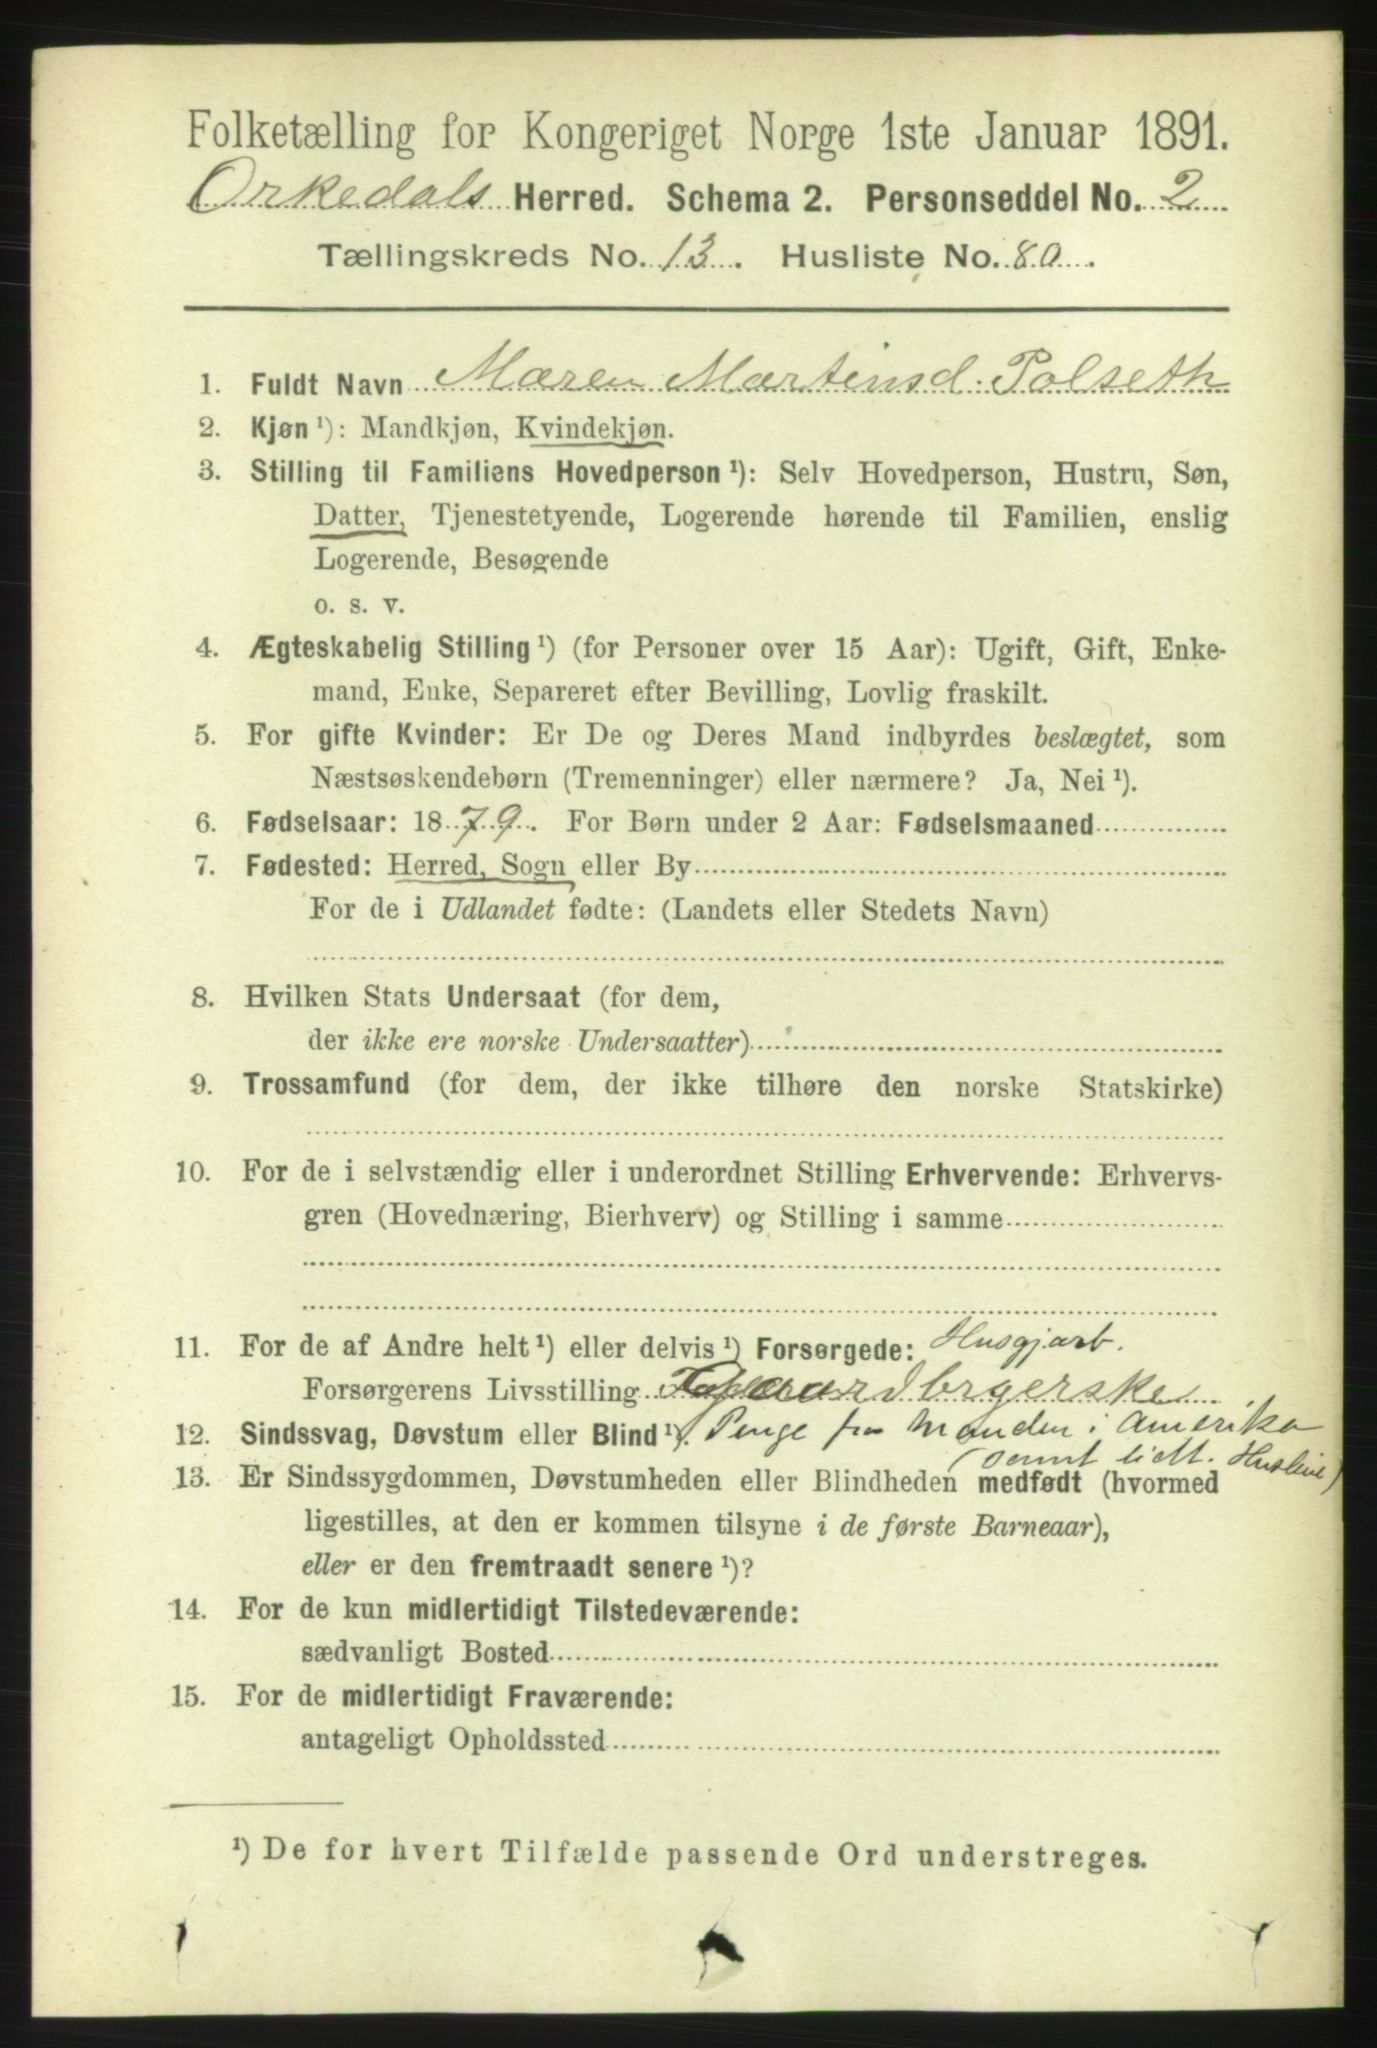 Folketælling for Kongeriget Norge 1ste Januar 1891.
Orkedals Herred. Schema 2. Personseddel No. 2
Tællingskreds No. 13. Husliste No. 80.
1. Fuldt Navn Maren Martinsd. Solseth
2. Kjøn ¹): Mandkjøn, Kvindekjøn.
3. Stilling til Familiens Hovedperson ¹): Selv Hovedperson, Hustru, Søn,
Datter, Tjenestetyende, Logerende hørende til Familien, enslig
Logerende, Besøgende
o. s. v.
4. Ægteskabelig Stilling ¹) (for Personer over 15 Aar): Ugift, Gift, Enke-
mand, Enke, Separeret efter Bevilling, Lovlig fraskilt.
5. For gifte Kvinder: Er De og Deres Mand indbyrdes beslægtet, som
Næstsøskendebørn (Tremenninger) eller nærmere? Ja, Nei ¹).
6. Fødselsaar: 1879. For Børn under 2 Aar: Fødselsmaaned
7. Fødested: Herred, Sogn eller By
For de i Udlandet fødte: (Landets eller Stedets Navn)
8. Hvilken Stats Undersaat (for dem,
der ikke ere norske Undersaatter)
9. Trossamfund (for dem, der ikke tilhøre den norske Statskirke)
10. For de i selvstændig eller i underordnet Stilling Erhvervende: Erhvervs-
gren (Hovednæring, Bierhverv) og Stilling i samme
11. For de af Andre helt ¹) eller delvis ¹) Forsørgede: Husgjarb.
Forsørgerens Livsstilling
12. Sindssvag, Døvstum eller Blind ¹). Penge fra Manden i Amerika
(samt lidt
13. Er Sindssygdommen, Døvstumheden eller Blindheden medfødt (hvormed
ligestilles, at den er kommen tilsyne i de første Barneaar),
eller er den fremtraadt senere ¹)?
14. For de kun midlertidigt Tilstedeværende:
sædvanligt Bosted
15. For de midlertidigt Fraværende:
antageligt Opholdssted
¹) De for hvert Tilfælde passende Ord understreges.